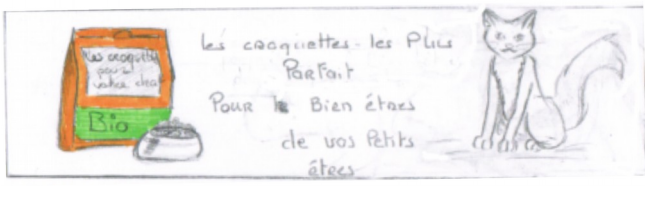 Les croquettes
pour
votre chat
Bio
Les croquettes les Plus
Parfait
Pour le Bien êtres
de vos Petits
êtres